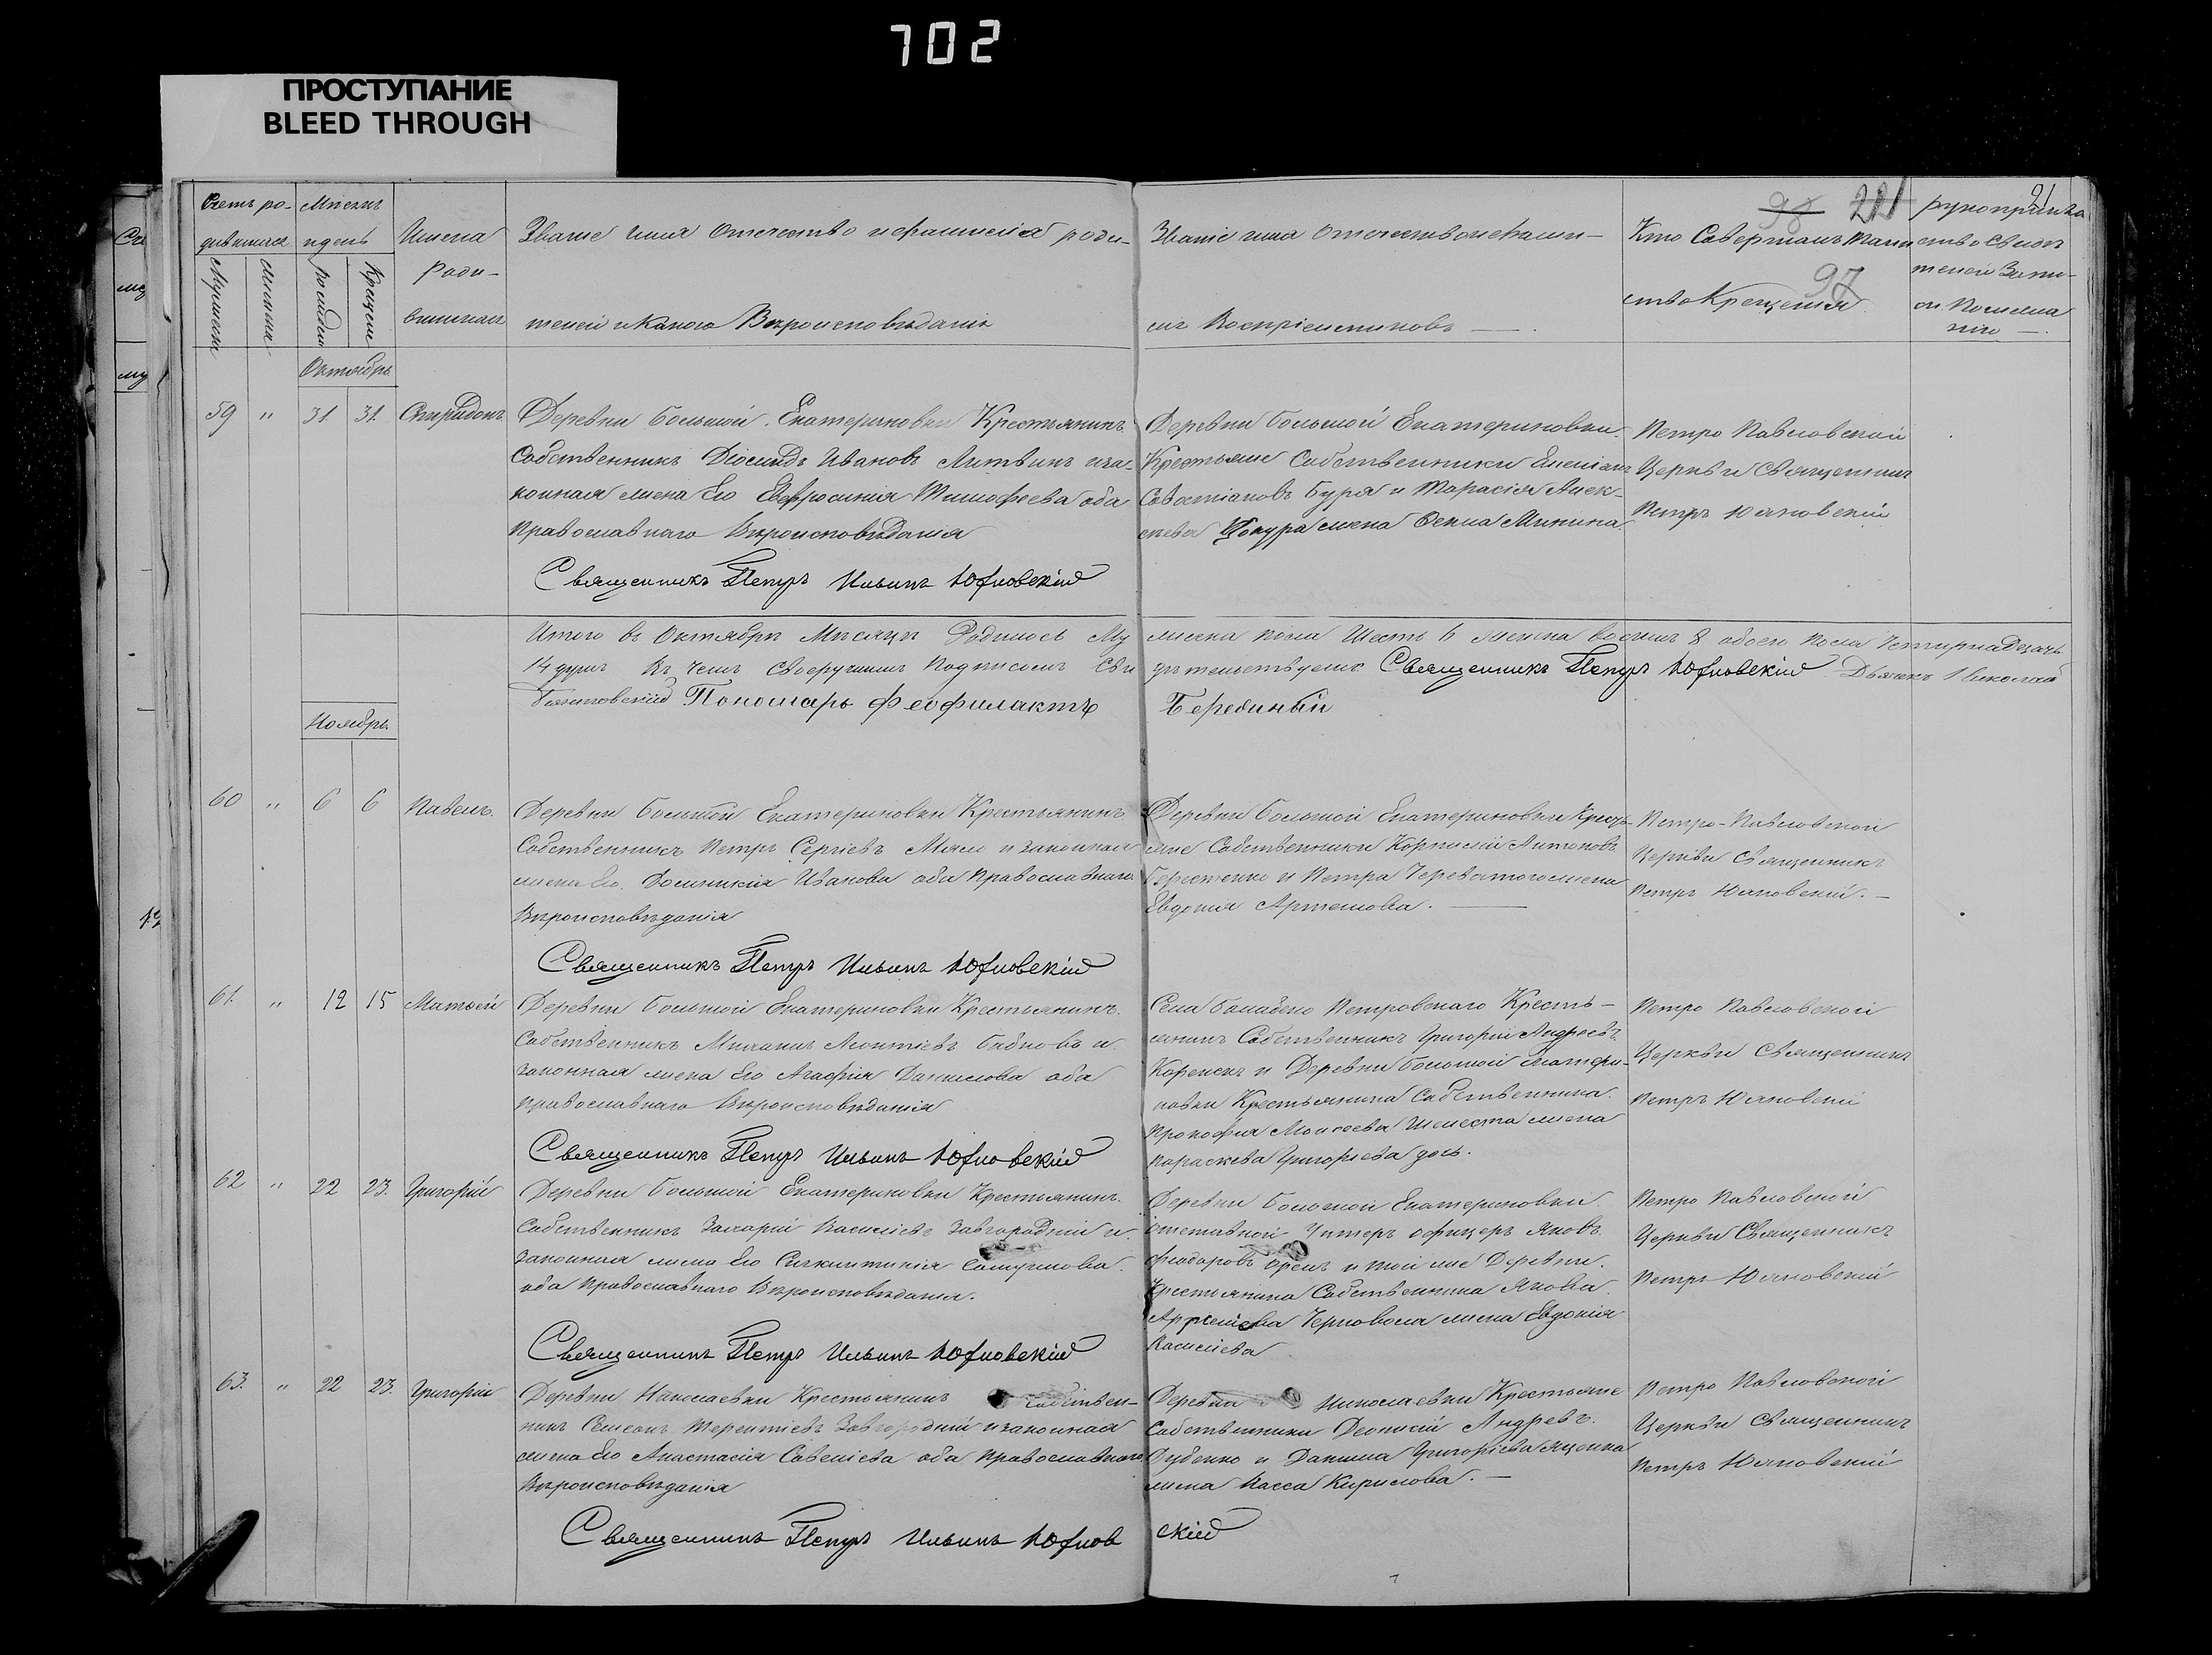 702
ПРОСТУПАНИЕ
BLEED THROUGH
98 221 21
97
Счетъ ро-
дившихся
Мужеска
Женска
Мѣсяцъ
и день
Рожденія
Крещенія
Имена
Роди-
вшихся
Званіе имя Отчество и фамилія роди-
телей и Какого Вѣроисповѣданія
Званіе имя Отчество и Фами-
лія Воспріемниковъ —.
Кто Совершалъ Таин
ство Крещенія
рукоприкла
ство Свидѣ
телей Запи-
си По жела
нію —.
Октябрь
59 " 31 31. Спиридонъ
Деревни Большой Екатериновки Крестьянинъ
Собственникъ Діомидъ Ивановъ Литвинъ и за-
конная жена Его Евфросинія Тимофеева оба
православнаго Вѣроисповѣданія
Священникъ Петръ Ильинъ Юхновскій
Деревни Большой Екатериновки
Крестьяне Собственники
Савостіановъ Буря и Тарасія Алек-
сѣева жена Фекла Минина
Петро Павловской
Церкви Священникъ
Петръ Юхновскій
Итого въ Октябрѣ Мѣсяцѣ Родилось Му
жеска пола Шесть 6 женска восемь 8 обоего пола Четырнадцать
14 душъ въ чемъ Своеручнымъ Подписомъ Сви
дѣтельствуемъ Священникъ Петръ Юхновскій Дьячекъ Николай
Пономарь Феофилактъ
Ноябрь
60 " 6 6 Павелъ.
Деревни Большой Екатериновки Крестьянинъ
Собственникъ Петръ Сергіевъ и законная
жена Его Домникія Иванова оба Православнаго
Вѣроисповѣданія
Священникъ Петръ Ильинъ Юхновскій
Деревни Большой Екатериновки Кресть-
яне Собственники Корнилій Антоновъ
и Петра жена
Евдокія Артемова. —
Петро-Павловской
Церкви Священникъ
Петръ Юхновскій. —
61. " 12 15 Матѳей
Деревни Большой Екатериновки Крестьянинъ.
Собственникъ Михаилъ Леонтіевъ и
законная жена Его Агафія Данилова оба
православнаго Вѣроисповѣданія
Священникъ Петръ Ильинъ Юхновскій
Села Петровскаго Кресть-
янинъ Собственникъ Григорій Андреевъ
и Деревни Большой Екатери-
новки Крестьянина Собственника
Прокофія Моисеева Шелеста жена
Параскева Григорьева дочь.
Петро Павловской
Церкви Священникъ
Петръ Юхновскій
62 " 22 23. Григорій
Деревни Большой Екатериновки Крестьянинъ.
Собственникъ Захарій Васильевъ Завгородній и
законная жена Его Синклитикія
оба Православнаго Вѣроисповѣданія.
Священникъ Петръ Ильинъ Юхновскій
Деревни Большой Екатериновки
отставной Унтеръ офицеръ Яковъ
Феодоровъ и той же Деревни
Крестьянина Собственника Якова
Черновола жена Евдокія
Васильева
Петро Павловской
Церкви Священникъ
Петръ Юхновскій
63. " 22 23. Григорій
Деревни Николаевки Крестьянинъ Собствен-
никъ Семенъ Терентіевъ Завгородній и законная
жена Его Анастасія Савеліева оба Православнаго
Вѣроисповѣданія
Священникъ Петръ Ильинъ Юхновскій
Деревни Николаевки Крестьяне
Собственники Деонисій Андреевъ
Дубенко и Данила Григорьева Яценка
жена Васса Кирилова. —
Петро Павловской
Церкви Священникъ
Петръ Юхновскій